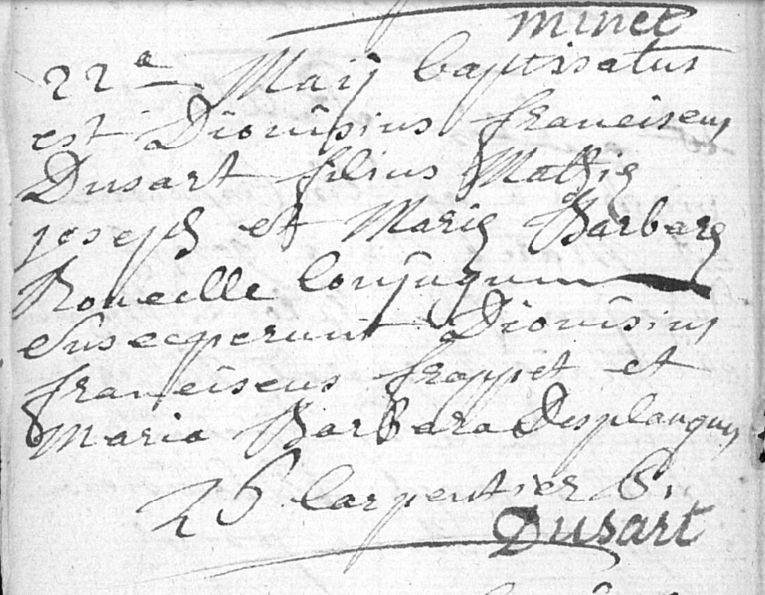 minet
22a Maij baptisatus
est Dionisius franciscus
Dusart filius Mathię
joseph et Marię Barbarę
Roucelle Conjugum
Susceperunt Dionisius
franciscus frappet et
Maria Barbara Desplanques
Carpentier
Dusart